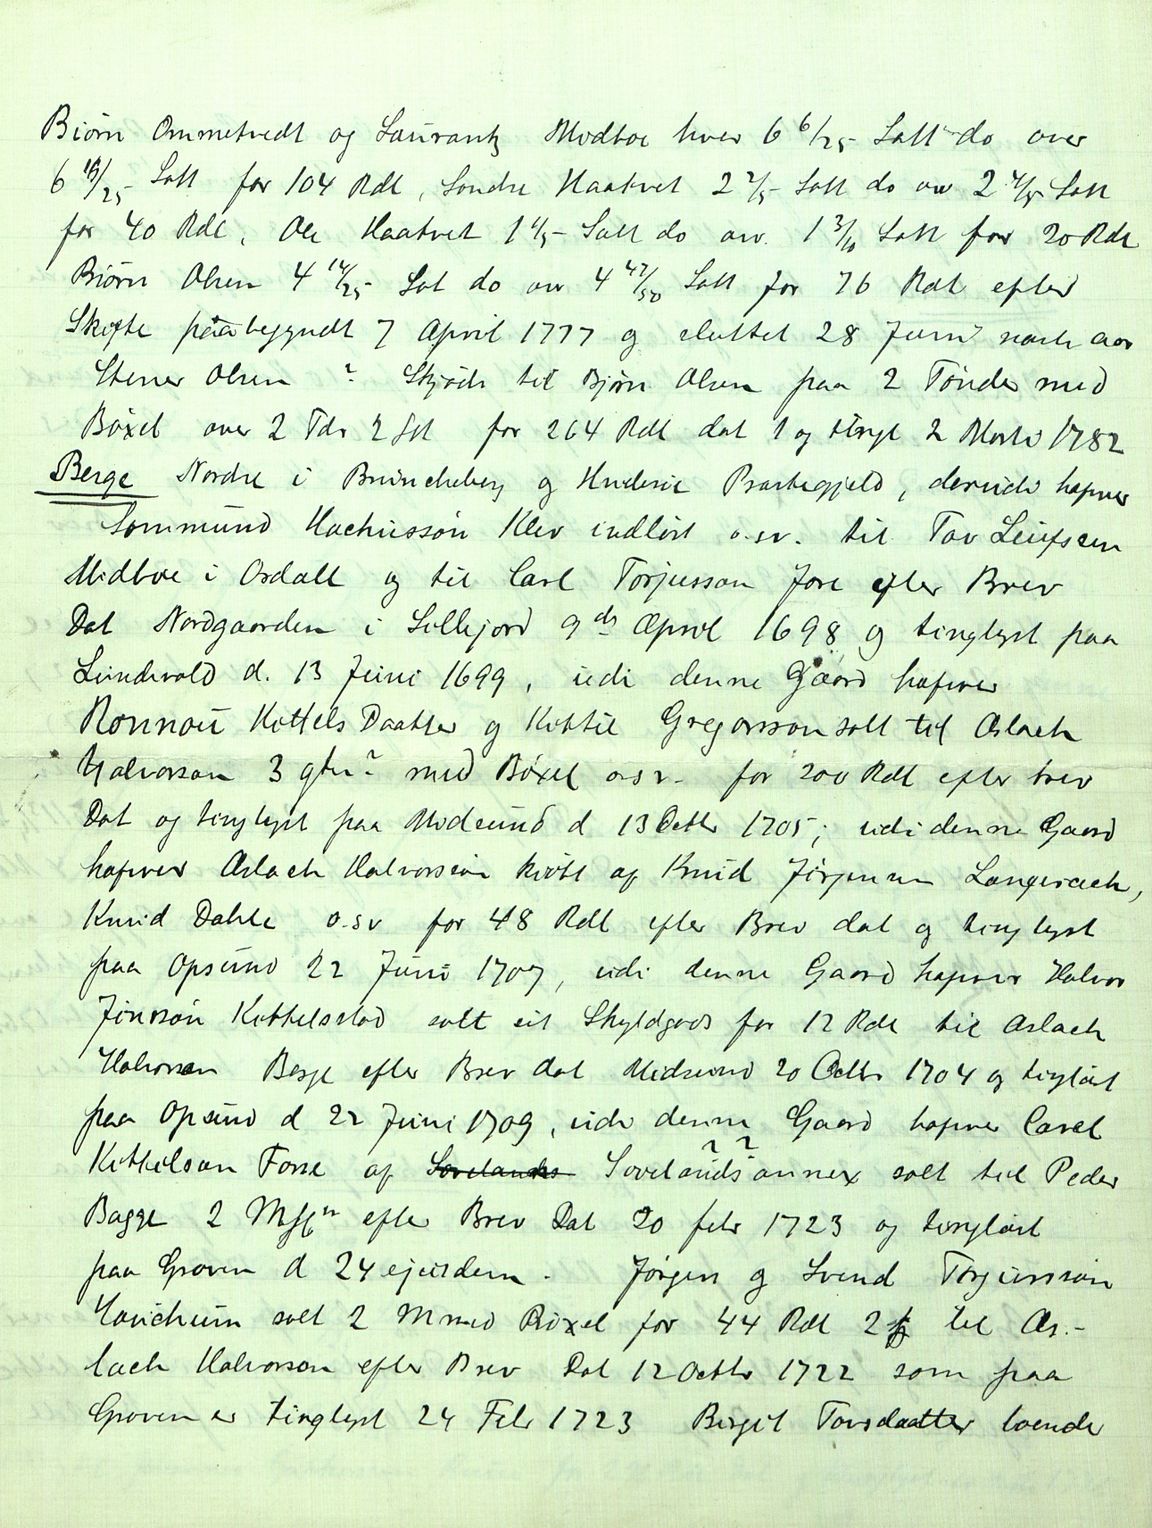 Biørn Ommetvedt og Laurantz Midboe hver 6 6/25 Sall do over
6 18/25 Sall for 104 Rdl, Søndre Haatvet 2 2/5 Sall do ov 2 4/5 Sall
for 40 Rdl, Ole Haatvet 1 1/5 Sall do ov. 1 3/10 Sall for 20 Rdl
Biørn Olsen 4 14/25 Sal do ov 4 47/50 Sall for 76 Rdl efter
Skifte paabegyndt 7 April 1777 og sluttet 28 Juni næste aar
Stener Olsen ? Skjøde til Bjørn Olsen paa 2 Tønder med
Bøxel over 2 Tdr 2 Sel for 264 Rdl dat 1 og tingl 2 Marts 1782
Berge Nordre i Bruncheberg og Hviderie Præstegjeld, derudi hafver
Sommund Hachissøn Klev indløst o.sv. til Tov Leifssen
Midboe i Ordall og til Carl Torjusson Jore efter Brev
Dat Nordgaarden i Sillejord 9de April 1698 og tinglyst paa
Lundevald d. 13 Juni 1699, udi denne Gaard hafver
Ronnou Kettels Daatter og Kettil Gregorsson solt til Aslach
Halvorson 3 gtn? med Bøxel o.s.v. for 200 Rdl efter brev
Dat og tinglyst paa Midsund d 13 Octbr 1705; udi denne Gaard
hafver Aslach Halvorsøn kiøbt af Knud Jørgensen Langerach,
Knud Dahle o.sv for 48 Rdl efter Brev dat og tinglyst
paa Opsund 22 Juni 1709, udi denne Gaard hafver Halvor
Jonsøn Kettelsstad solt sit Skyldgods for 12 Rdl til Aslach
Halvorsen Berge efter Brev dat Midsund 20 Octbr 1704 og tinglæst
paa Opsund d 22 Juni 1709, udi denne Gaard hafver Carel
Kettelson Forse af Sovelands Sovelands?annex? solt til Peder
Bagge 2 Mkr efter Brev Dat 20 febr 1723 og tinglæst
paa Groven d 24 ejusdem. Jørgen og Svend Torjussøn
Haucheim solt 2 M med Bøxel for 44 Rdl 2 til As.-
lach Halvorson efter Brev Dat 12 Octbr 1722 som paa
Groven er tinglyst 24 Febr 1723 Birgit Tovsdaatter boende